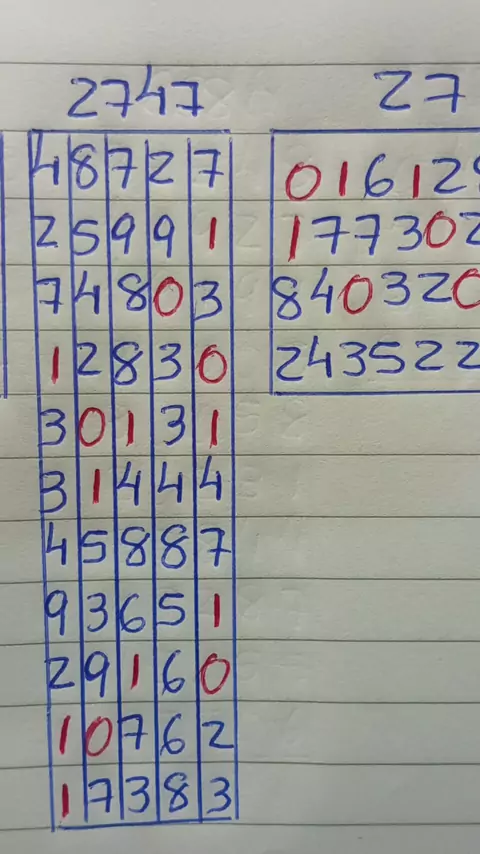 2747
48727
25991
74803
12830
30131
31444
45887
93651
29160
10762
17383
27
01612
177302
840320
243522